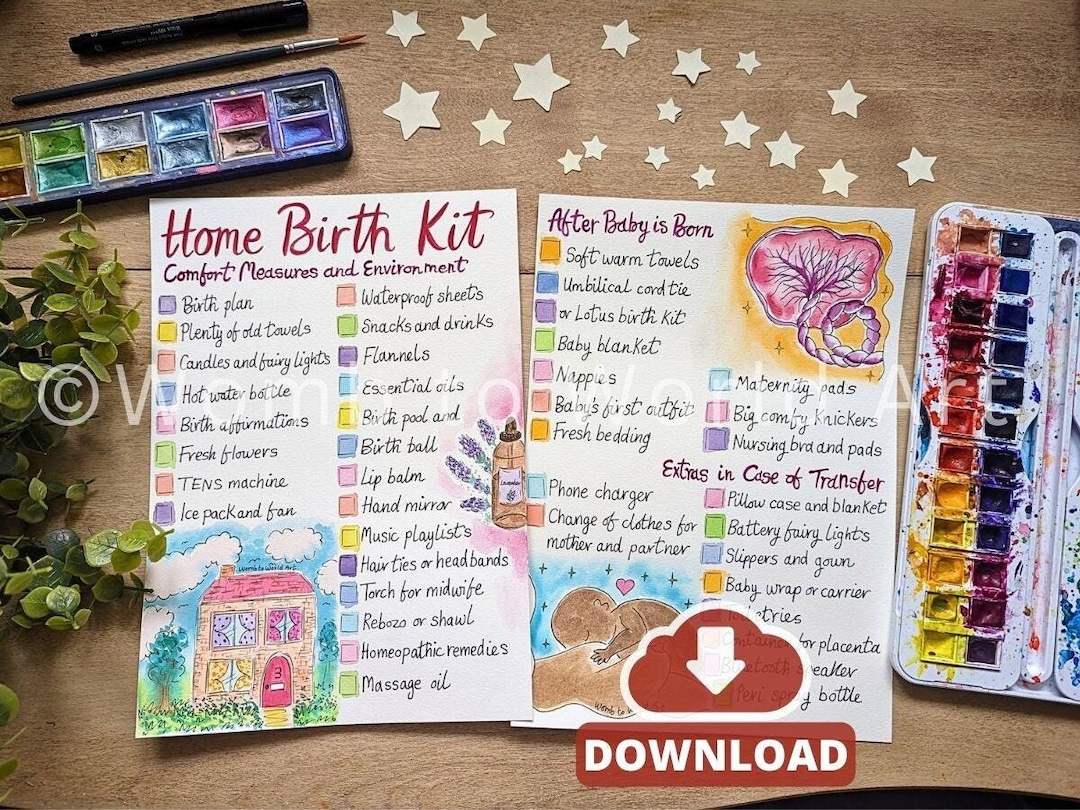 Home Birth Kit
Comfort Measures and Environment
Birth plan
Plenty of old towels
Candles and fairy lights
Hot water bottle
Birth affirmations
Fresh flowers
TENS machine
Ice pack and fan
Waterproof sheets
Snacks and drinks
Flannels
Essential oils
Birth pool and
Birth ball
Lip balm
Hand mirror
Music playlists
Hair ties or headbands
Torch for midwife
Rebozo or shawl
Homeopathic remedies
Massage oil
Lavender
Womb to World Art
3
After Baby is Born
Soft warm towels
Umbilical cord tie
or Lotus birth kit
Baby blanket
Nappies
Baby's first outfit
Fresh bedding
Maternity pads
Big comfy knickers
Nursing bra and pads
Extras in Case of Transfer
Phone charger
Change of clothes for
mother and partner
Pillow case and blanket
Battery fairy lights
Slippers and gown
Baby wrap or carrier
Toiletries
Container for placenta
Bluetooth speaker
Peri spray bottle
Womb to
© Womb to World Art
DOWNLOAD